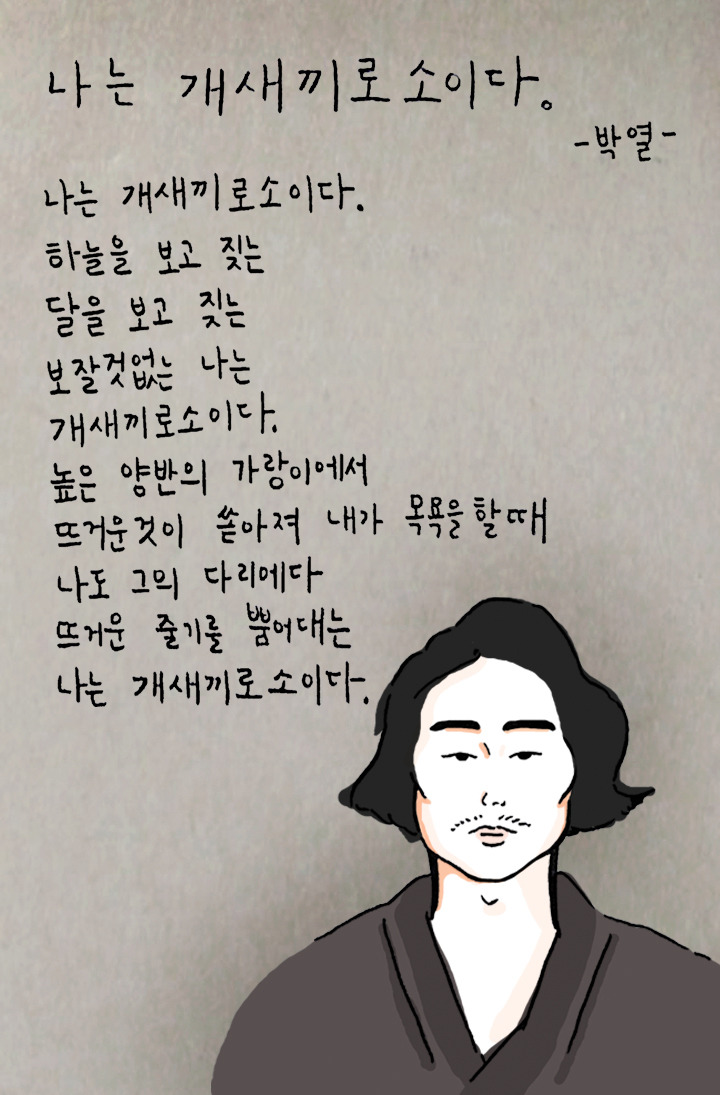 나는 개새끼로소이다.
-박열-
나는 개새끼로소이다.
하늘을 보고 짖는
달을 보고 짖는
보잘것없는 나는
개새끼로소이다.
높은 양반의 가랑이에서
뜨거운것이 쏟아져 내가 목욕을 할때
나도 그의 다리에다
뜨거운 줄기를 뿜어대는
나는 개새끼로소이다.